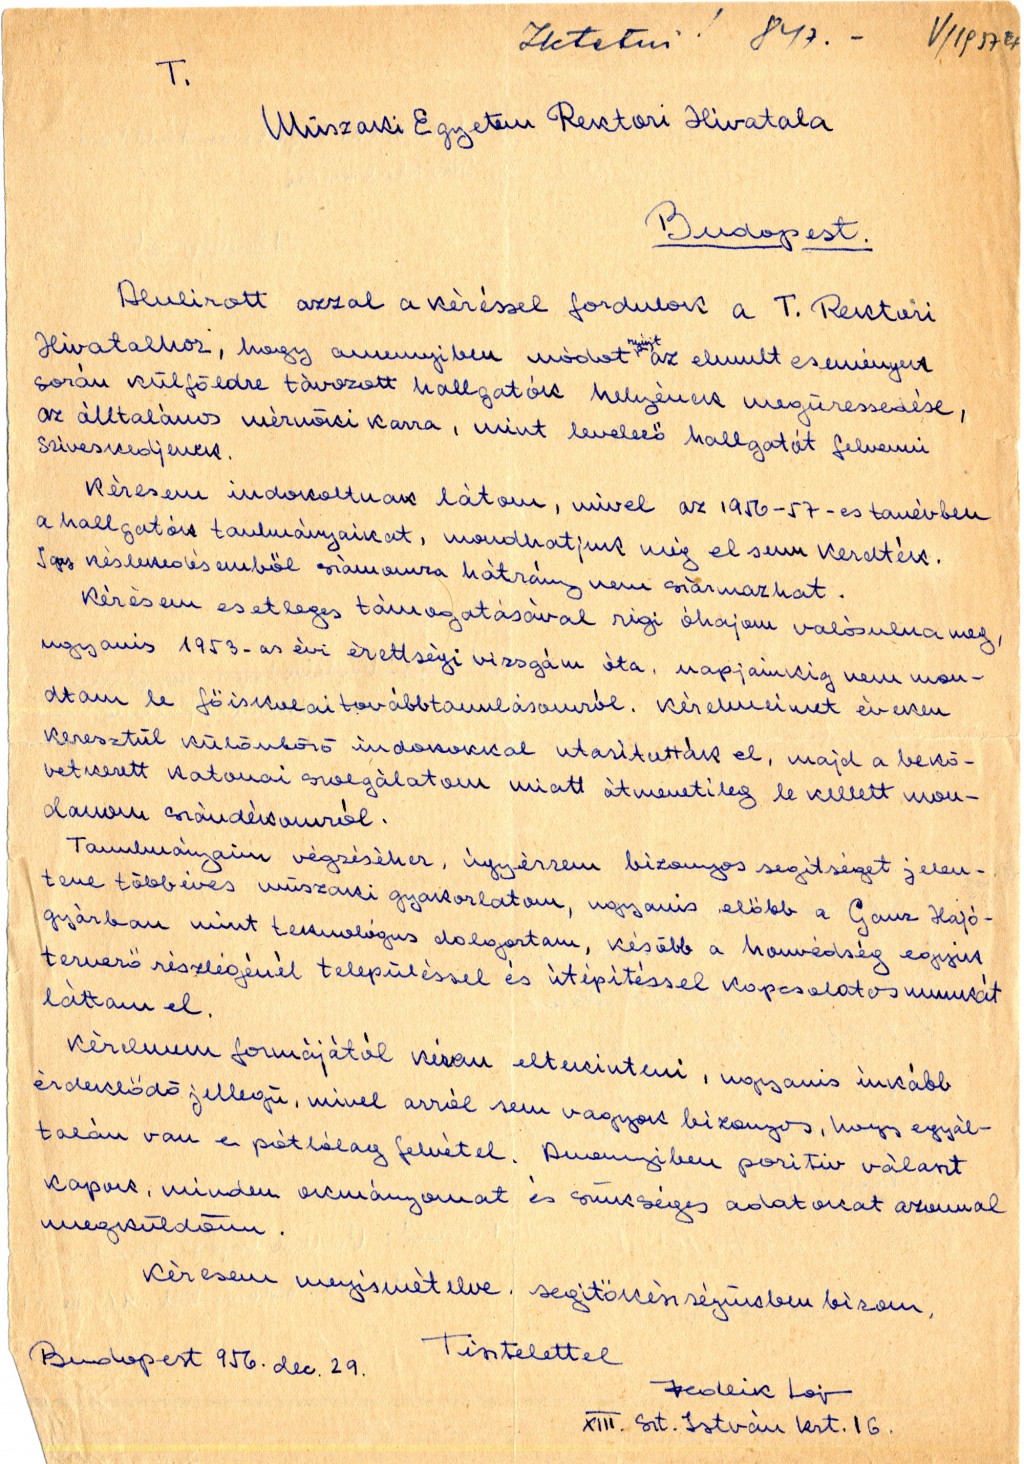 Iktetni! 847. - V/1957
T.
Műszaki Egyetem Rektori Hivatala
Budapest.
Alulirott azzal a kéréssel fordulok a T. Rektori
Hivatalhoz, hogy amennyiben módot nyujt az elmult események
során külföldre távozott hallgatók helyének megüressedése,
az álltalános mérnöki karra, mint levelező hallgatót felvenni
sziveskedjenek.
Kérésem indokoltnak látom, mivel az 1956-57-es tanévben
a hallgatók tanulmányaikat, mondhatjuk még el sem kezdték.
Igy késlekedésemből számomra hátrány nem származhat.
Kérésem esetleges támogatásával régi óhajom valósulna meg,
ugyanis 1953-as évi érettségi vizsgám óta, napjainkig nem mon-
dtam le főiskolai továbbtanulásomról. Kérelmeimet éveken
keresztül különböző indokokkal utasitották el, majd a bekö-
vetkezett katonai szolgálatom miatt átmenetileg le kellett mon-
danom szándékomról.
Tanulmányaim végzéséhez, úgyérzem bizonyos segitséget jelen-
tene többéves műszaki gyakorlatom, ugyanis előbb a Ganz Hajó-
gyárban mint teknológus dolgoztam, később a honvédség egyik
tervező részlégénél településsel és útépitéssel kapcsolatos munkát
láttam el.
Kérelmem formájától kérem eltekinteni, ugyanis inkább
érdeklődő jellegű, mivel arról sem vagyok bizonyos, hogy egyál-
talán van e pótlólag felvétel. Amennyiben pozitiv választ
kapok, minden okmányomat és szükséges adatokat azonnal
megküldöm.
Kérésem megismételve, segitőkészségükben bizom,
Tisztelettel
Budapest 956. dec. 29.
XIII. Szt. István krt. 16.